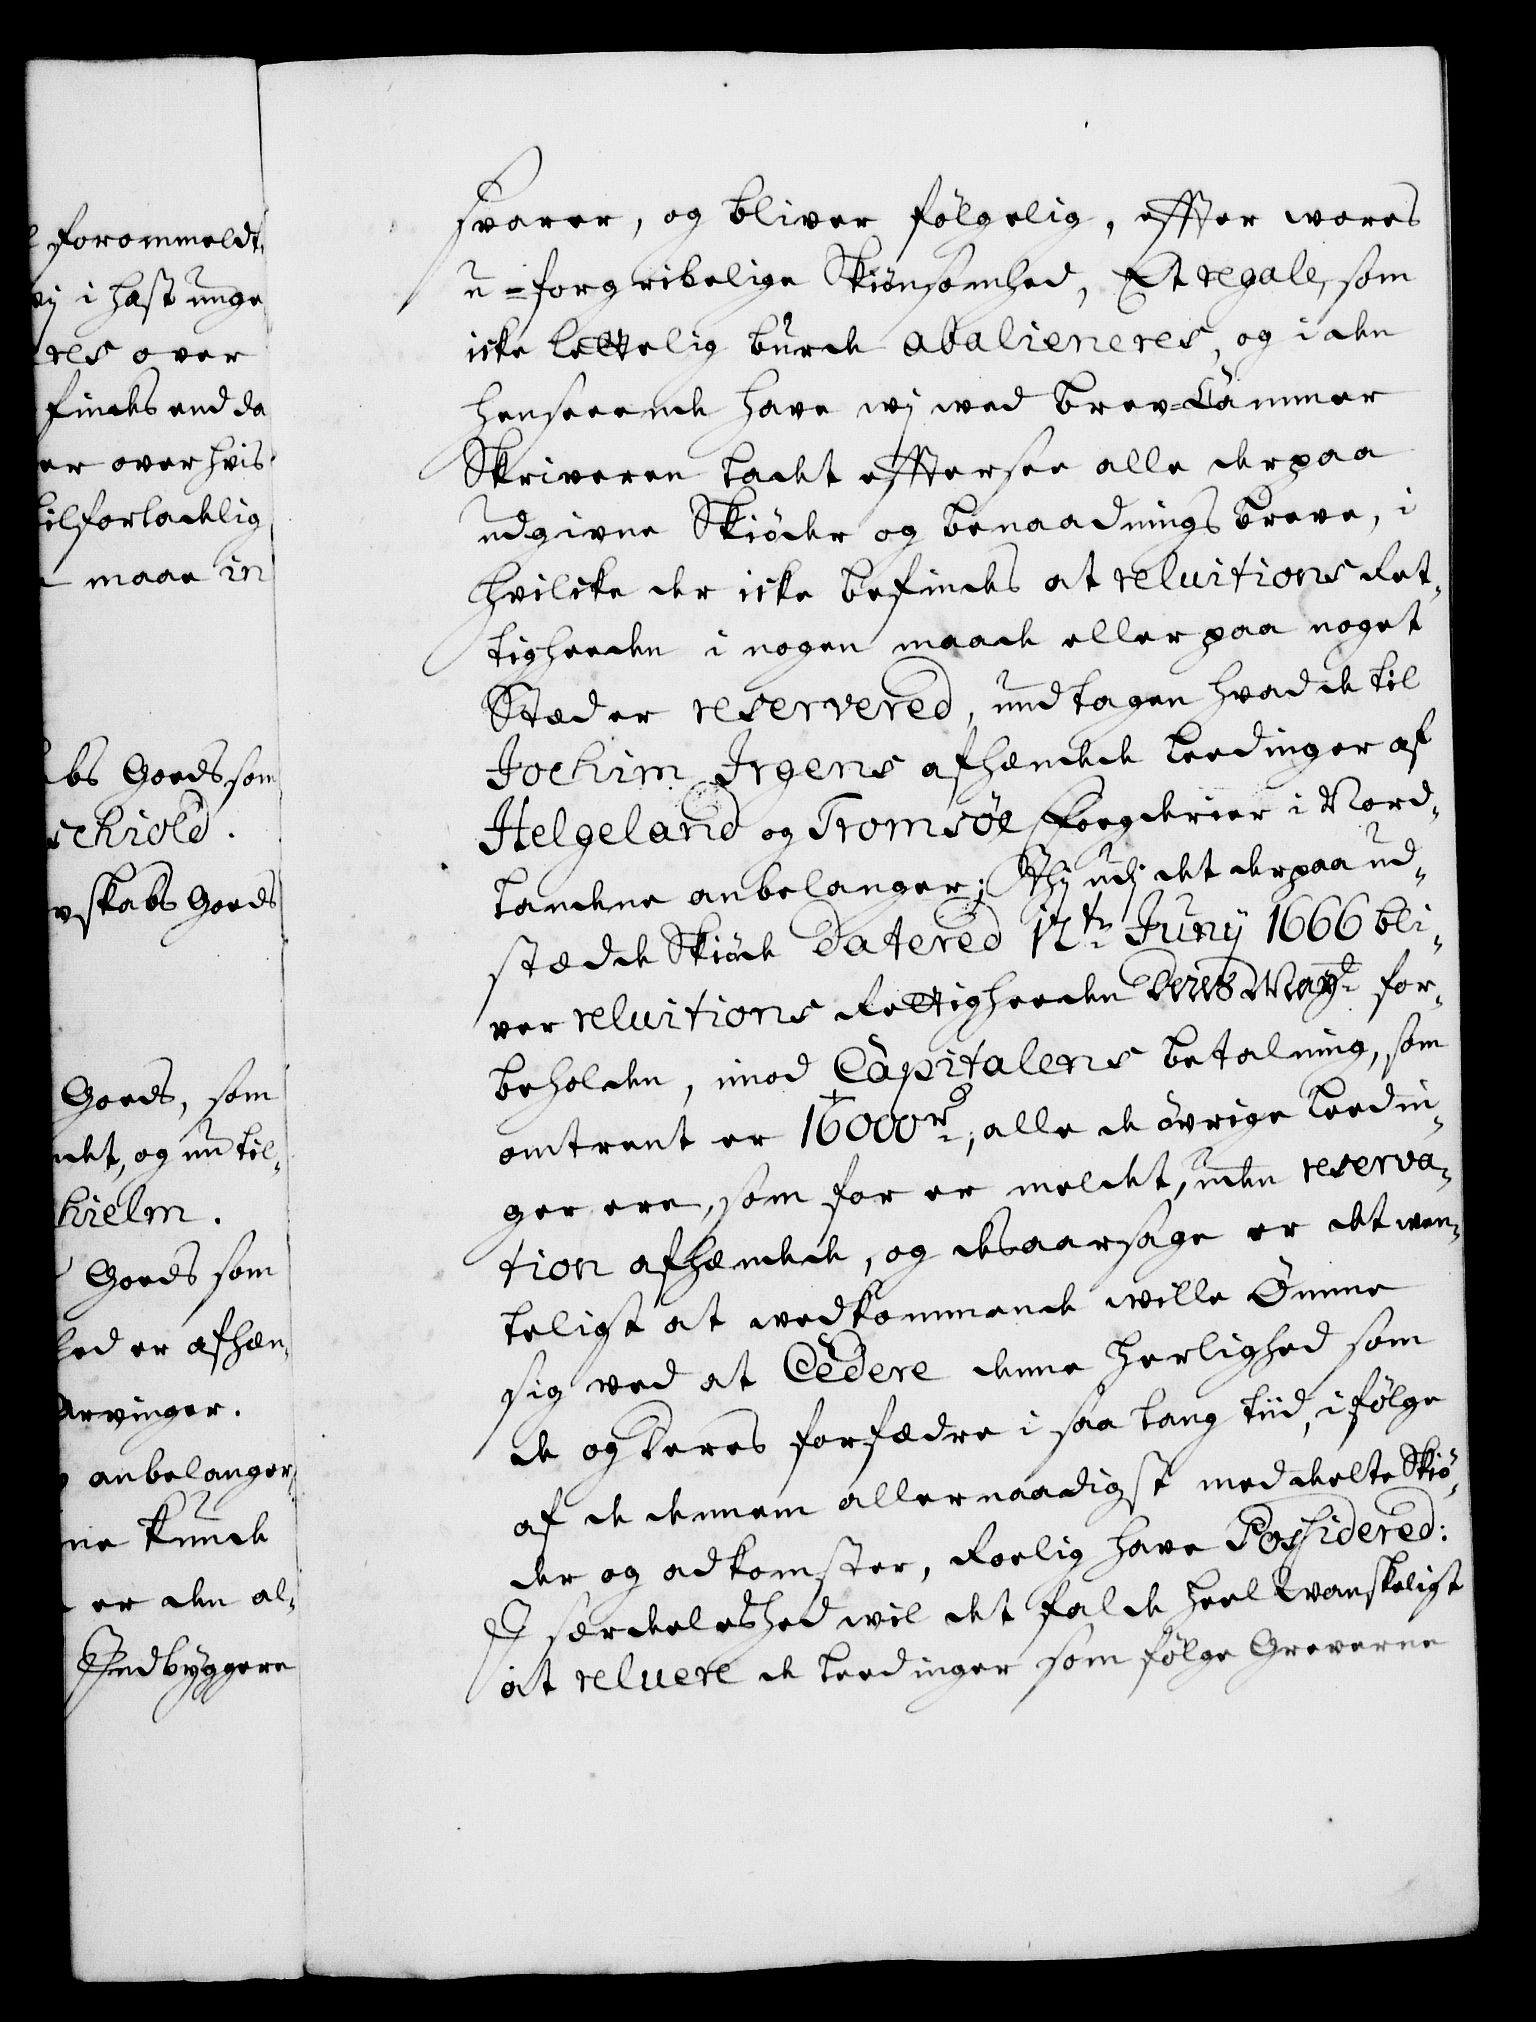 l forommeldt,
vj i hast unge
eres over
findes end da
er over hvis
tilforladelig
maae in
bs Goeds som
schiold.
vskabs Goeds
Goeds, som
ndet, og nu til-
hielm.
Goeds som
hed er afhæn-
Arvinger.
anbelanger,
ne kunde
er den al-
Indbyggere
svarer, og bliver følgelig, effter wores
u-forgribelige Skiønsomhed, Et regale, som
icke lettelig burde abalieneres, og i den
henseende have wj wed Brev-Cammer
Skriveren ladet efftersee alle derpaa
udgivne Skiøder og benaadnings breve, i
hvilcke der icke befindes at reluitions Ret-
tigheeden i nogen maade eller paa noget
Stæd er reservered, undtagen hvad de til
Jochim Jrgens afhændede Leedinger af
Helgeland og Tromsöe Foegderier i Nord-
landene anbelanger; Thj udj det derpaa ud-
stædde Skiøde Datered 12te Junij 1666 bli-
ver reluitions Rettigheeden Deres Mayt: for-
beholden, imod Capitalens betalning, som
omtrent er 16000 rd:, alle de øvrige Leedin-
ger ere, som før er meldet, uden reserva-
tion afhændede, og desaarsage er det wen-
teligt at wedkommende wille Ømme
sig ved at Cedere denne herlighed som
de og deres forfædre i saa lang tiid, i følge
af de dennem allernaadigst meddeelte Skiø-
der og adkomster, Roelig have Possidered:
I særdeleshed wil det falde heel wanskeligt
at reluere de Leedinger som følge Greverne